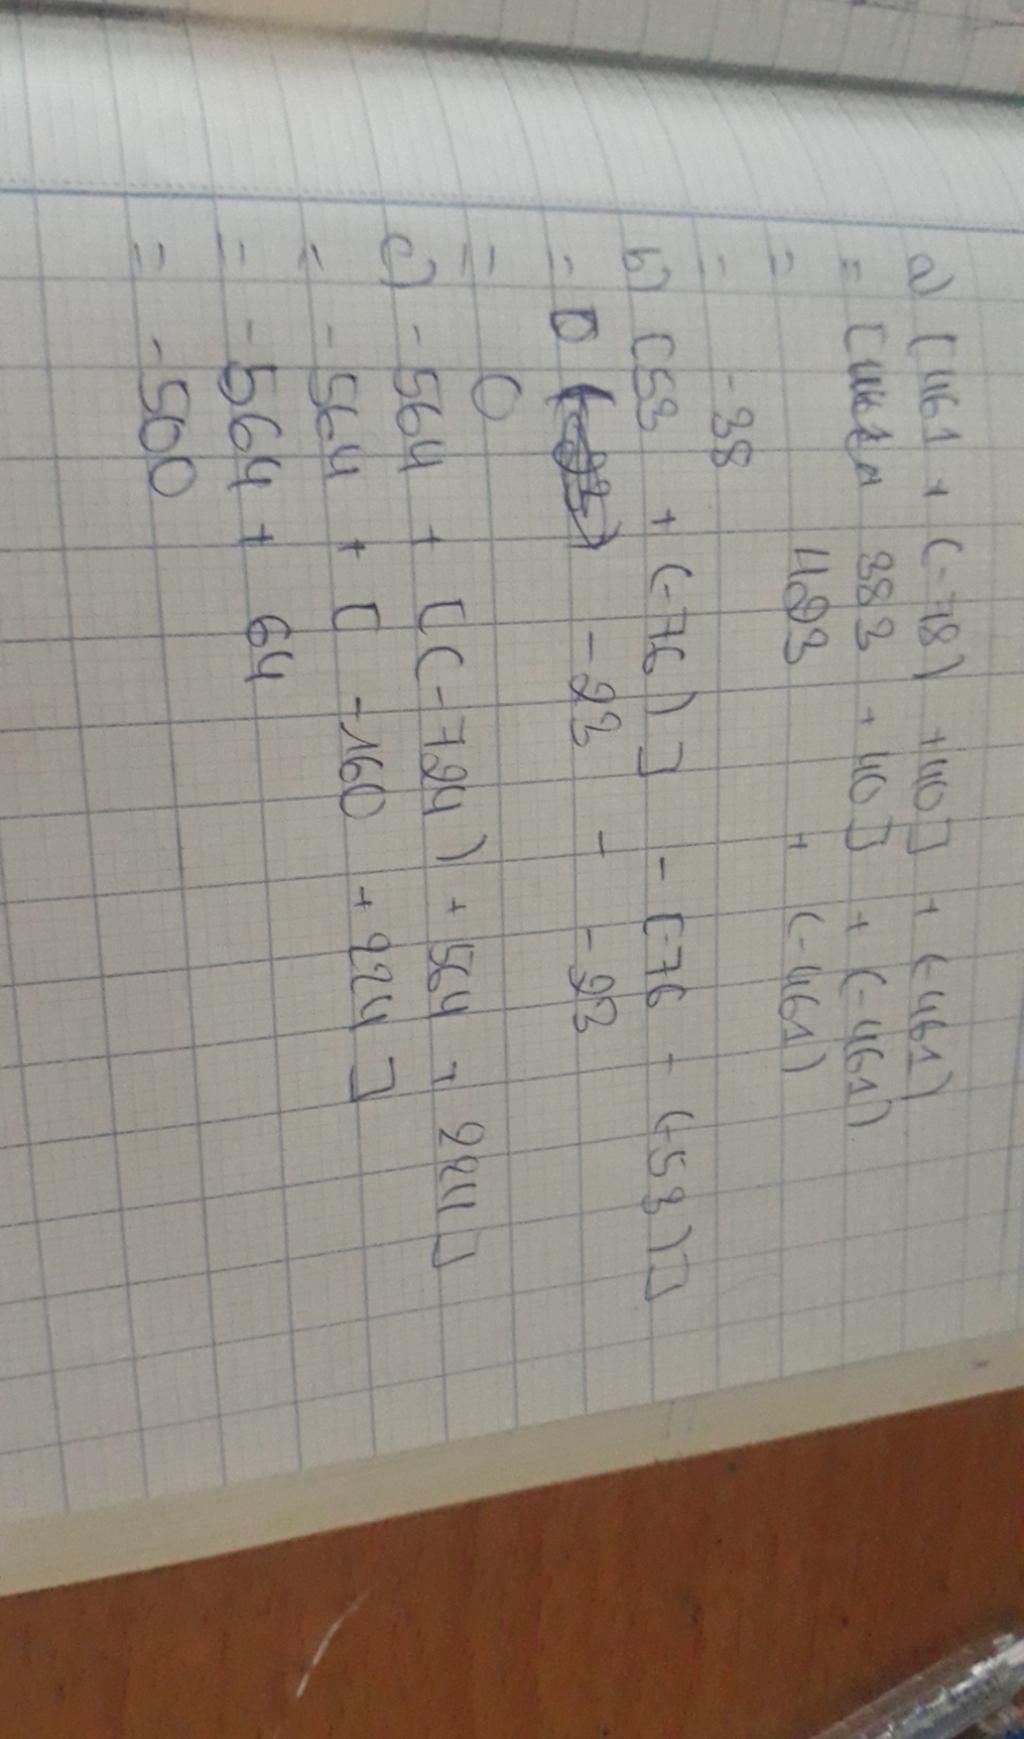 a) [461 + (-78) + 40] + (-461)
= [ 383 + 40] + (-461)
= 423 + (-461)
= -38
b) [53 + (-76)] - [-76 - (-53)]
= -23 - -23
= 0
c) -564 + [(-724) + 564 + 224]
= -564 + [ -160 + 224]
= -564 + 64
= -500